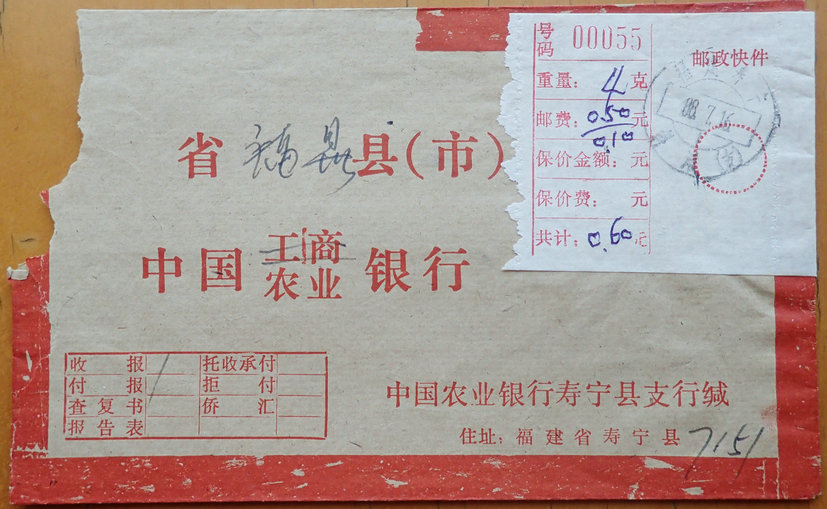 号码 00055
邮政快件
重量: 4 克
邮费: 0.50 元
0.10
保价金额: 元
保价费: 元
共计: 0.60 元
88.7.16
省 福鼎 县(市)
中国 工商 银行
农业
收报
托收承付
付报
拒付
查复书
侨汇
报告表
中国农业银行寿宁县支行缄
住址: 福建省寿宁县
7151